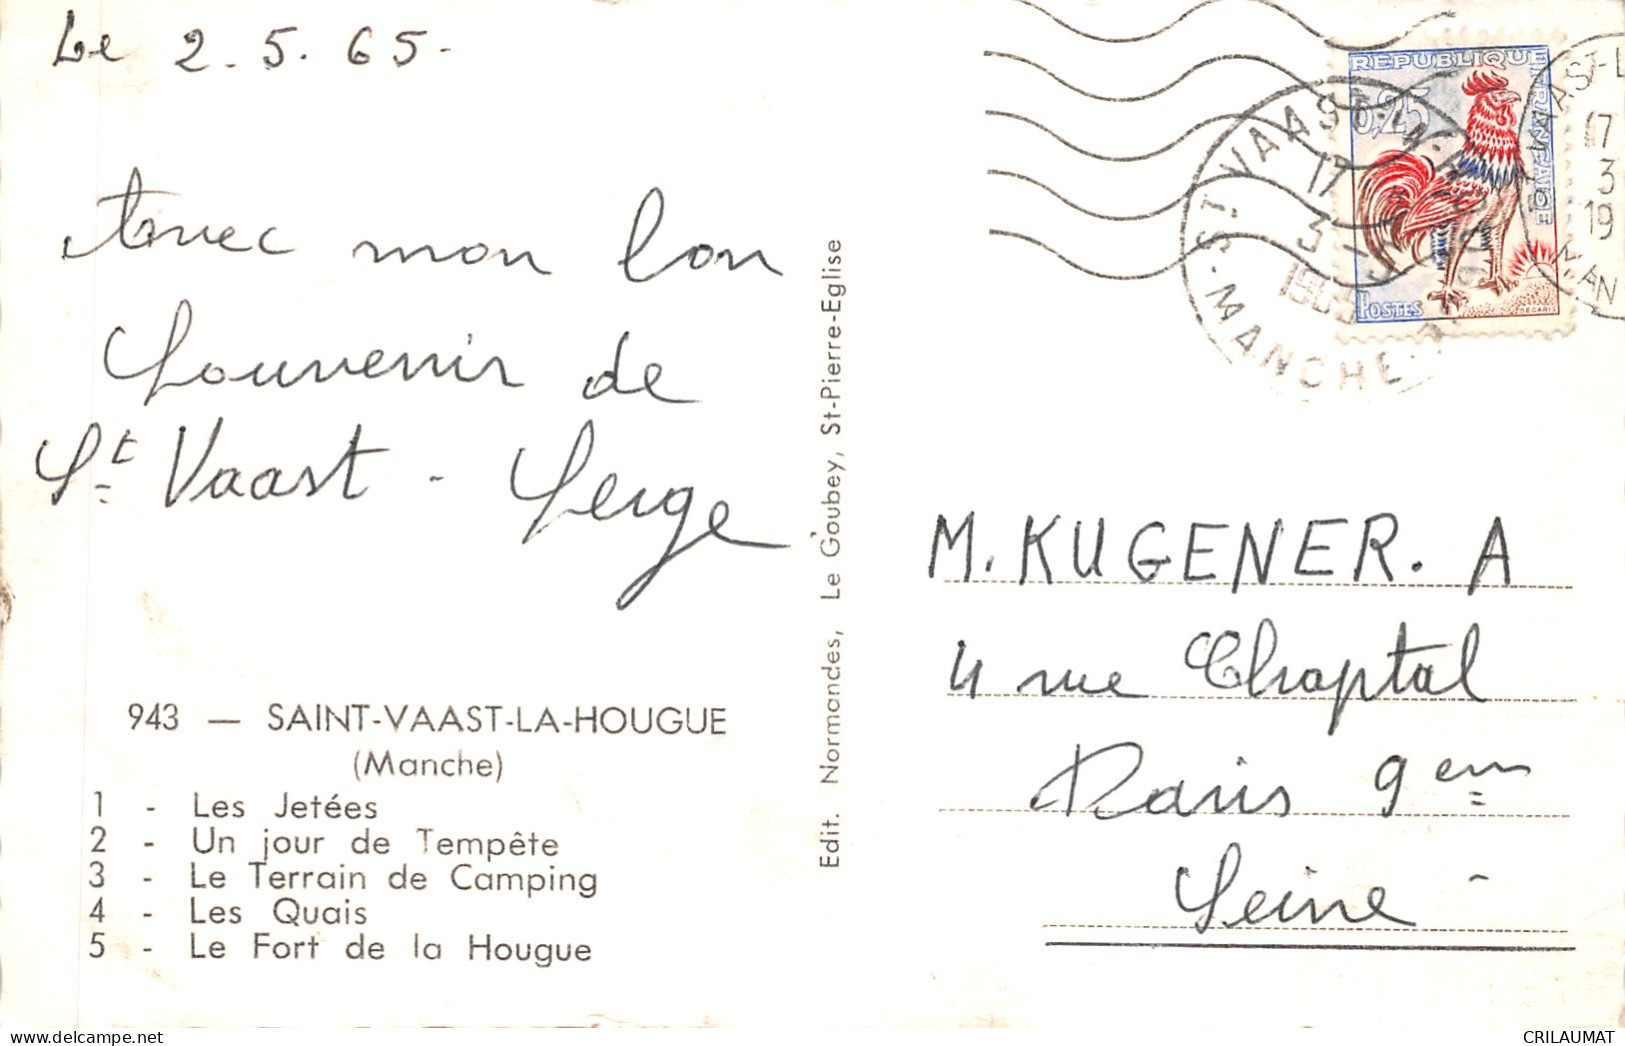 Le 2.5.65-
Avec mon bon
Souvenir de
St Vaast - Serge
943 — SAINT-VAAST-LA-HOUGUE
(Manche)
1 - Les Jetées
2 - Un jour de Tempête
3 - Le Terrain de Camping
4 - Les Quais
5 - Le Fort de la Hougue
Edit. Normandes, Le Goubey, St-Pierre-Eglise
REPUBLIQUE FRANÇAISE
0,25
POSTES
DECARIS
ST VAAST-LA-HOUGUE
17
3-5
1965
MANCHE
AST-L
17
3
19
MAN
M. KUGENER. A
4 rue Chaptal
Paris 9em
Seine -
CRILAUMAT